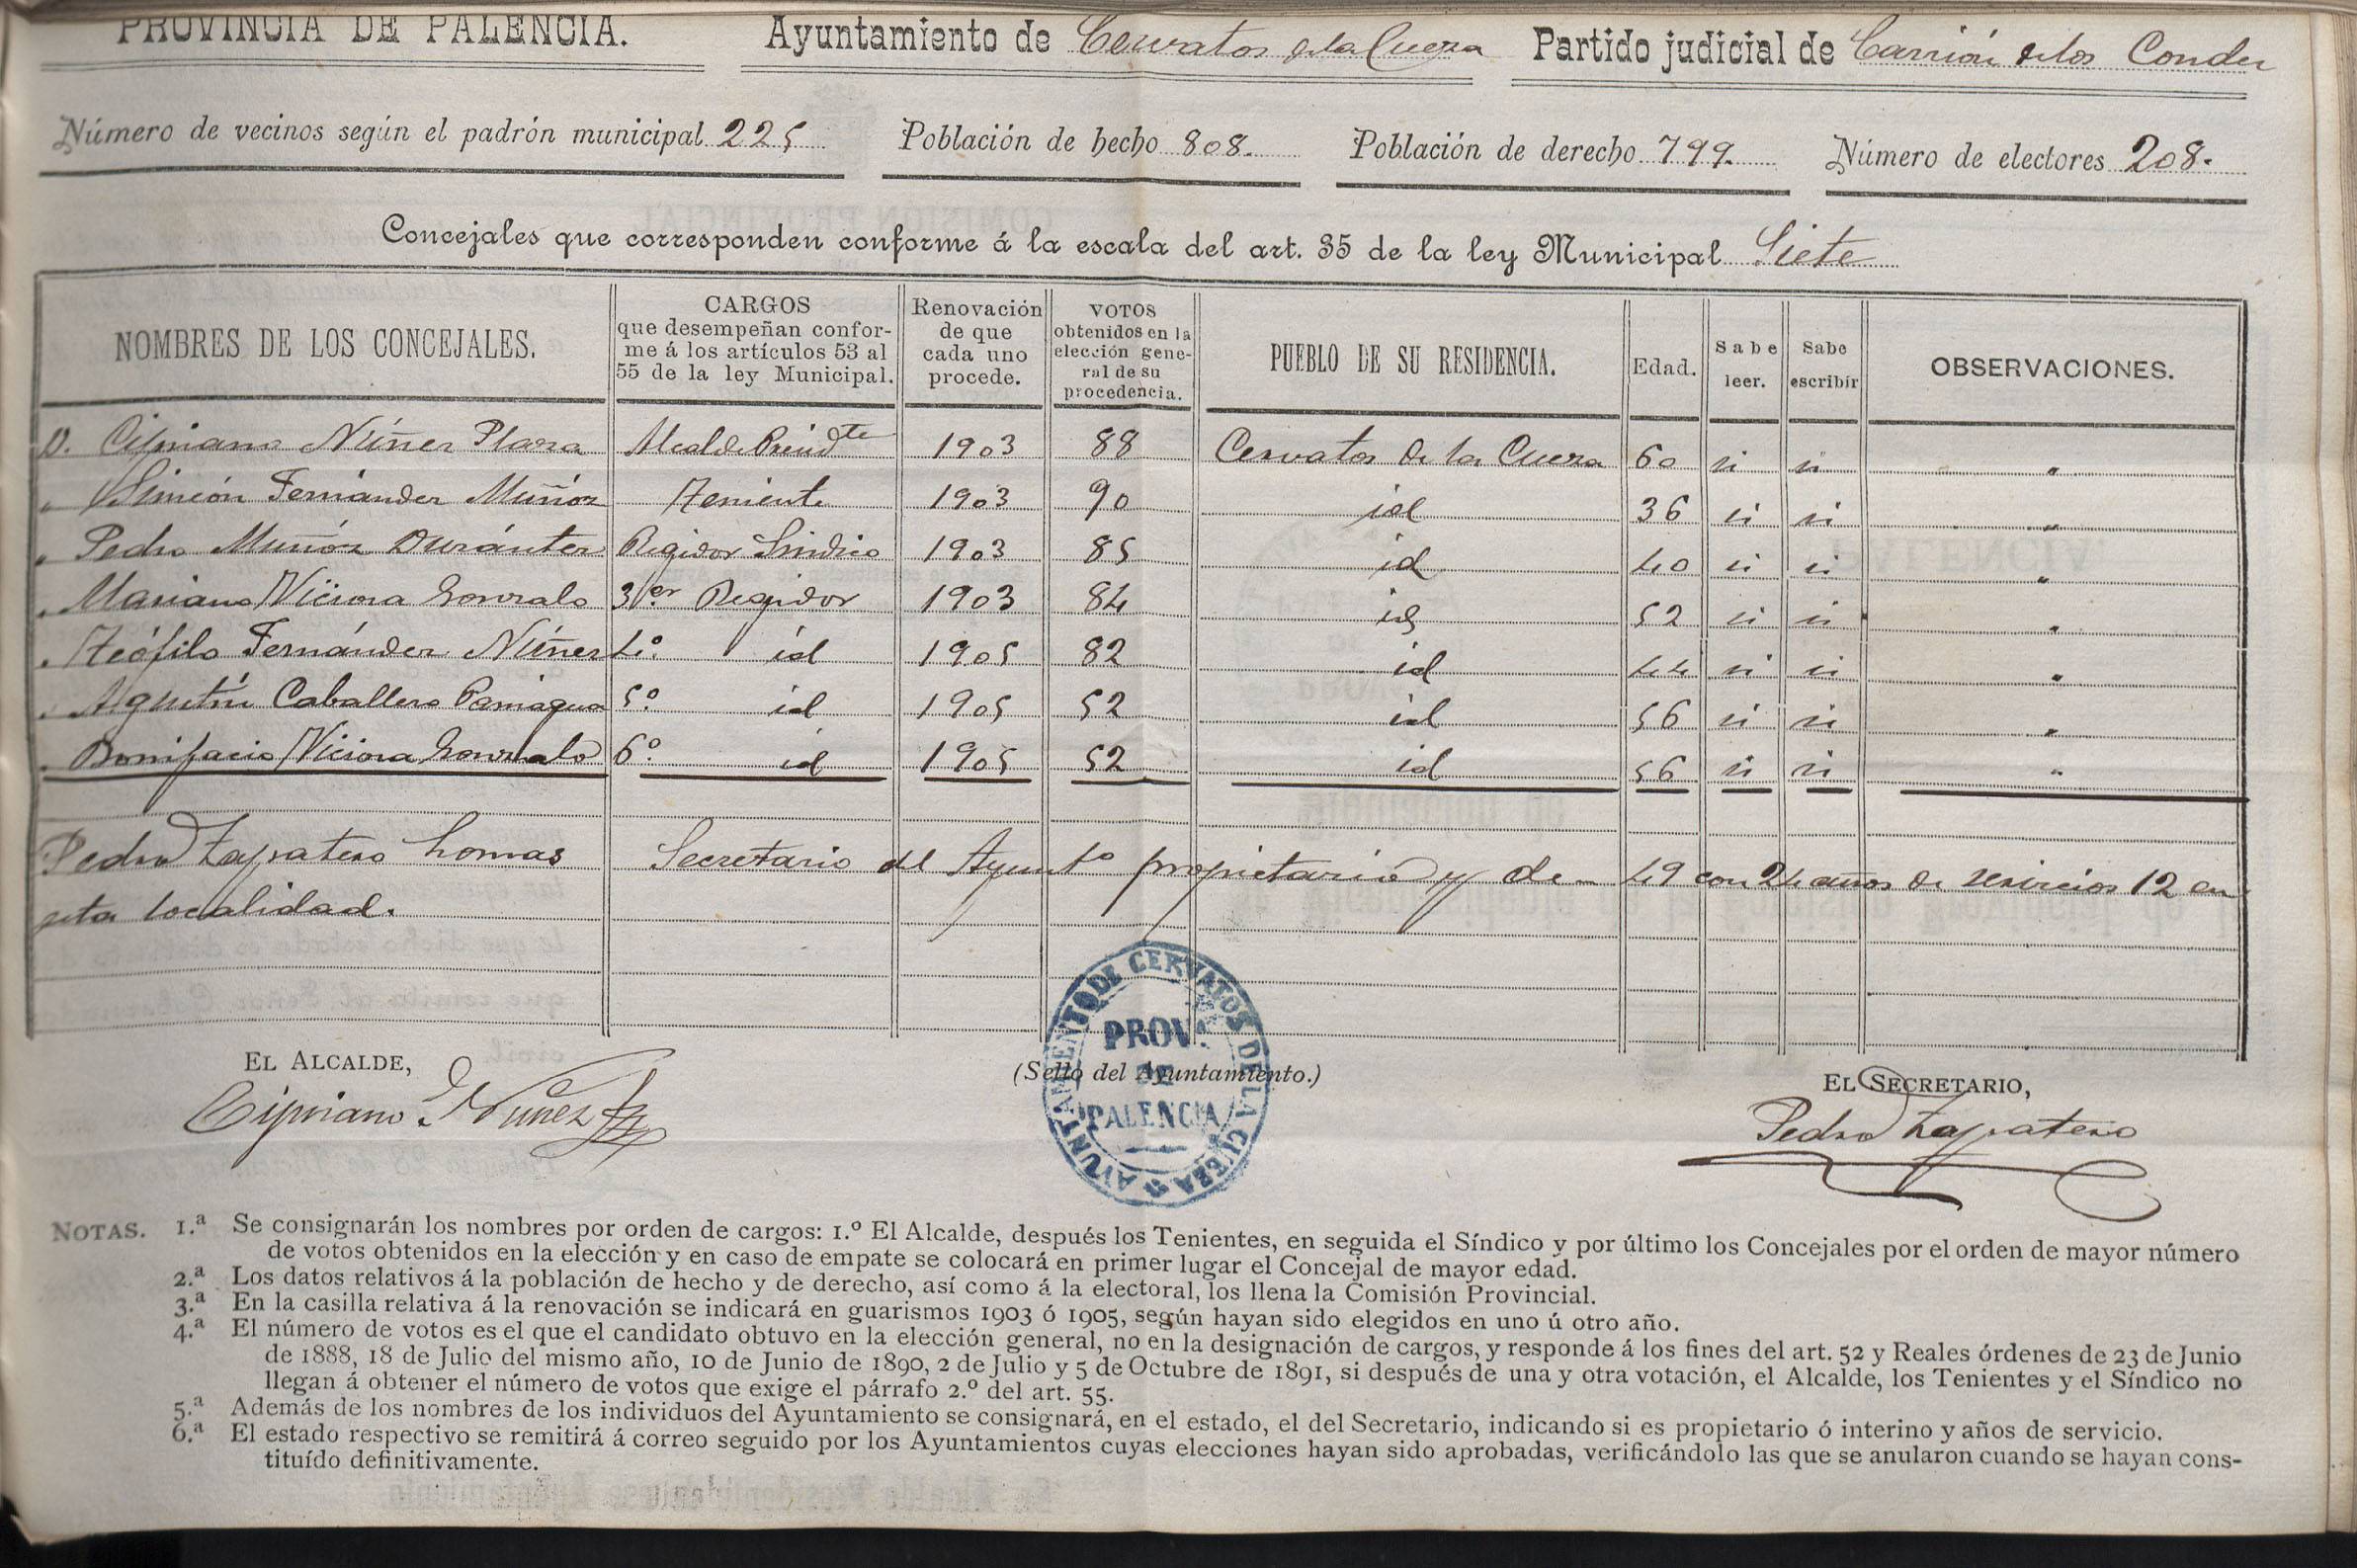 PROVINCIA DE PALENCIA. Ayuntamiento de Cervatos de la Cueza Partido judicial de Carrión de los Condes
Número de vecinos según el padrón municipal 225 Población de hecho 808. Población de derecho 799. Número de electores 208.
Concejales que corresponden conforme á la escala del art. 35 de la ley Municipal Siete
NOMBRES DE LOS CONCEJALES. CARGOS que desempeñan conforme á los artículos 53 al 55 de la ley Municipal. Renovación de que cada uno procede. VOTOS obtenidos en la elección general de su procedencia. PUEBLO DE SU RESIDENCIA. Edad. Sabe leer. Sabe escribir OBSERVACIONES.
D. Cipriano Núñez Plaza Alcalde Presidte 1903 88 Cervatos de la Cueza 60 si si "
" Simeón Fernández Muñóz Teniente 1903 90 id 36 si si "
" Pedro Muñóz Durántez Regidor Síndico 1903 85 id 40 si si "
" Mariano Viciosa Gonzalo 3er Regidor 1903 84 id 52 si si "
" Teófilo Fernández Núñez 4º. id 1905 82 id 44 si si "
" Agustín Caballero Paniagua 5º id 1905 52 id 56 si si "
" Bonifacio Viciosa Gonzalo 6º. id 1905 52 id 56 si si "
Pedro Zapatero Lomas Secretario del Ayuntº propietario y de 49 con 24 años de servicios 12 en
esta localidad.
EL ALCALDE, (Sello del Ayuntamiento.) EL SECRETARIO,
Cipriano Nuñez Pedro Zapatero
AYUNTAMIENTO DE CERVATOS DE LA CUEZA
PROV.
DE
PALENCIA
NOTAS. 1.ª Se consignarán los nombres por orden de cargos: 1.º El Alcalde, después los Tenientes, en seguida el Síndico y por último los Concejales por el orden de mayor número
de votos obtenidos en la elección y en caso de empate se colocará en primer lugar el Concejal de mayor edad.
2.ª Los datos relativos á la población de hecho y de derecho, así como á la electoral, los llena la Comisión Provincial.
3.ª En la casilla relativa á la renovación se indicará en guarismos 1903 ó 1905, según hayan sido elegidos en uno ú otro año.
4.ª El número de votos es el que el candidato obtuvo en la elección general, no en la designación de cargos, y responde á los fines del art. 52 y Reales órdenes de 23 de Junio
de 1888, 18 de Julio del mismo año, 10 de Junio de 1890, 2 de Julio y 5 de Octubre de 1891, si después de una y otra votación, el Alcalde, los Tenientes y el Síndico no
llegan á obtener el número de votos que exige el párrafo 2.º del art. 55.
5.ª Además de los nombres de los individuos del Ayuntamiento se consignará, en el estado, el del Secretario, indicando si es propietario ó interino y años de servicio.
6.ª El estado respectivo se remitirá á correo seguido por los Ayuntamientos cuyas elecciones hayan sido aprobadas, verificándolo las que se anularon cuando se hayan cons-
tituído definitivamente.